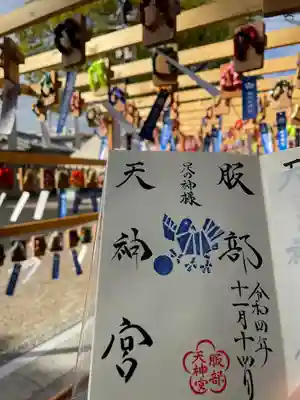 足の神様
服部
天神宮
令和四年
十一月十四日
服部
天神宮